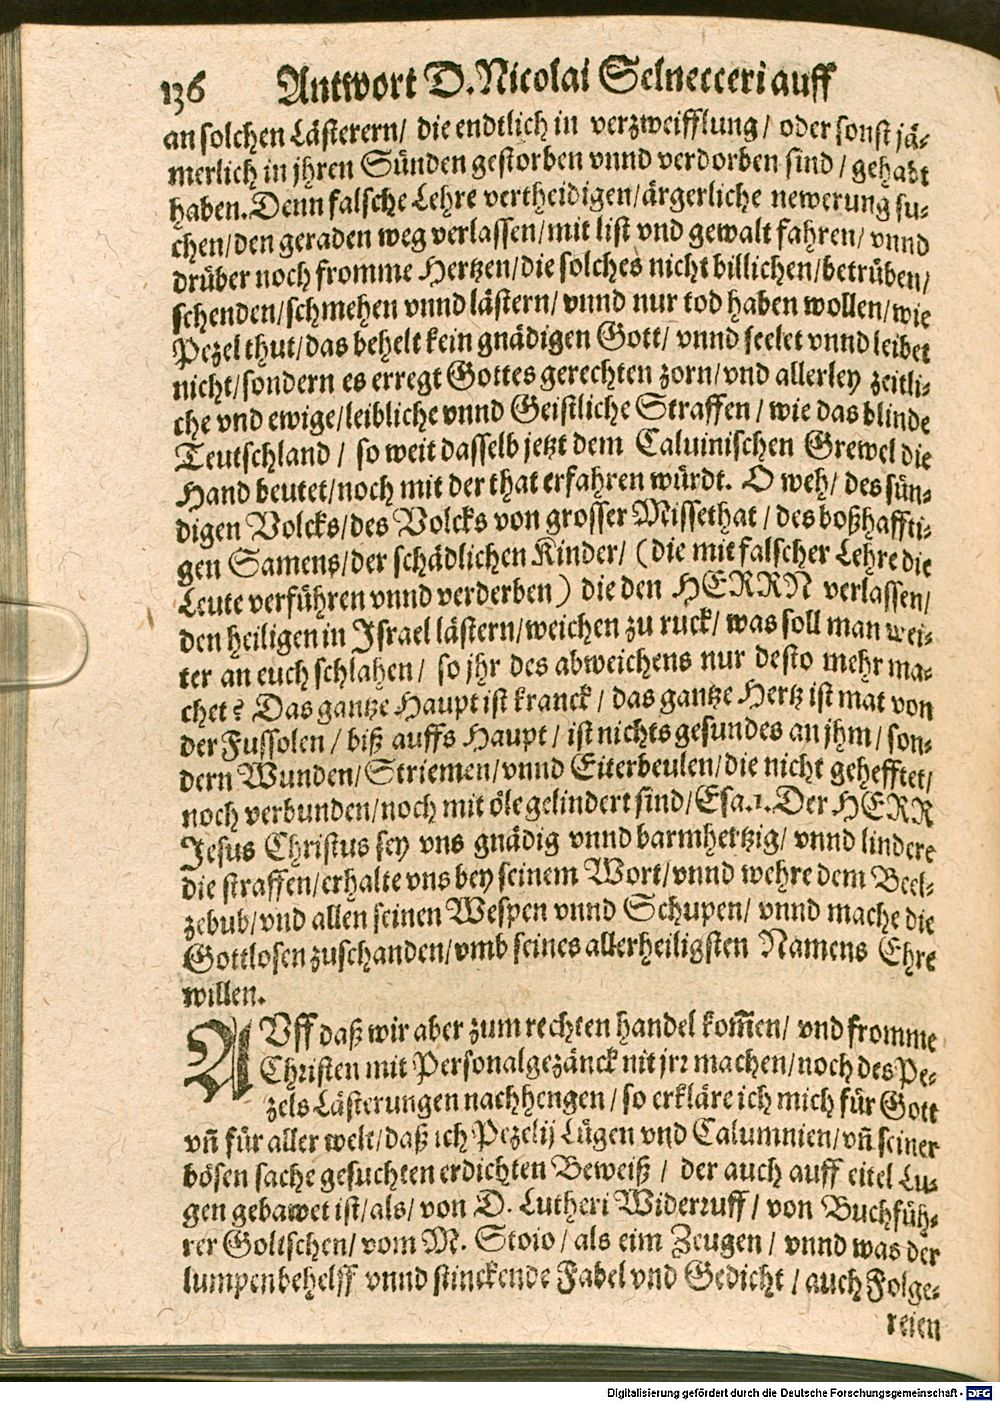 136 Antwort D. Nicolai Selnecceri auff
an solchen Lästerern/ die endtlich in verzweifflung/ oder sonst jä-
merlich in jhren Sünden gestorben vnnd verdorben sind/ gehabt
haben. Denn falsche Lehre vertheidigen/ ärgerliche newerung su-
chen/ den geraden weg verlassen/ mit list vnd gewalt fahren/ vnnd
drüber noch fromme Hertzen/ die solches nicht billichen/ betrüben/
schenden/ schmehen vnnd lästern/ vnnd nur tod haben wollen/ wie
Pezel thut/ das behelt kein gnädigen Gott/ vnnd seelet vnnd leibet
nicht/ sondern es erregt Gottes gerechten zorn/ vnd allerley zeitli-
che vnd ewige/ leibliche vnnd Geistliche Straffen/ wie das blinde
Teutschland/ so weit dasselb jetzt dem Caluinischen Grewel die
Hand beutet/ noch mit der that erfahren würdt. O weh/ des sün-
digen Volcks/ des Volcks von grosser Missethat/ des boßhaffti-
gen Samens/ der schädlichen Kinder/ (die mit falscher Lehre die
Leute verführen vnnd verderben) die den HERRN verlassen/
den heiligen in Israel lästern/ weichen zu ruck/ was soll man wei-
ter an euch schlahen/ so jhr des abweichens nur desto mehr ma-
chet? Das gantze Haupt ist kranck/ das gantze Hertz ist mat von
der Fussolen/ biß auffs Haupt/ ist nichts gesundes an jhm/ son-
dern Wunden/ Striemen/ vnnd Eiterbeulen/ die nicht gehefftet/
noch verbunden/ noch mit öle gelindert sind/ Esa. 1. Der HERR
Jesus Christus sey vns gnädig vnnd barmhertzig/ vnnd lindere
die straffen/ erhalte vns bey seinem Wort/ vnnd wehre dem Beel-
zebub/ vnd allen seinen Wespen vnnd Schupen/ vnnd mache die
Gottlosen zuschanden/ vmb seines allerheiligsten Namens Ehre
willen.
AVff daß wir aber zum rechten handel kom̃en/ vnd fromme
Christen mit Personalgezänck nit jrr machen/ noch des Pe-
zels Lästerungen nachhengen/ so erkläre ich mich für Gott
vñ für aller welt/ daß ich Pezelij Lügen vnd Calumnien/ vñ seiner
bösen sache gesuchten erdichten Beweiß/ der auch auff eitel Lu-
gen gebawet ist/ als/ von D. Lutheri Widerruff/ von Buchfüh-
rer Goltschen/ vom M. Stoio/ als eim Zeugen/ vnnd was der
lumpenbehelff vnnd stinckende Fabel vnd Gedicht/ auch Folge-
reien
Digitalisierung gefördert durch die Deutsche Forschungsgemeinschaft - DFG